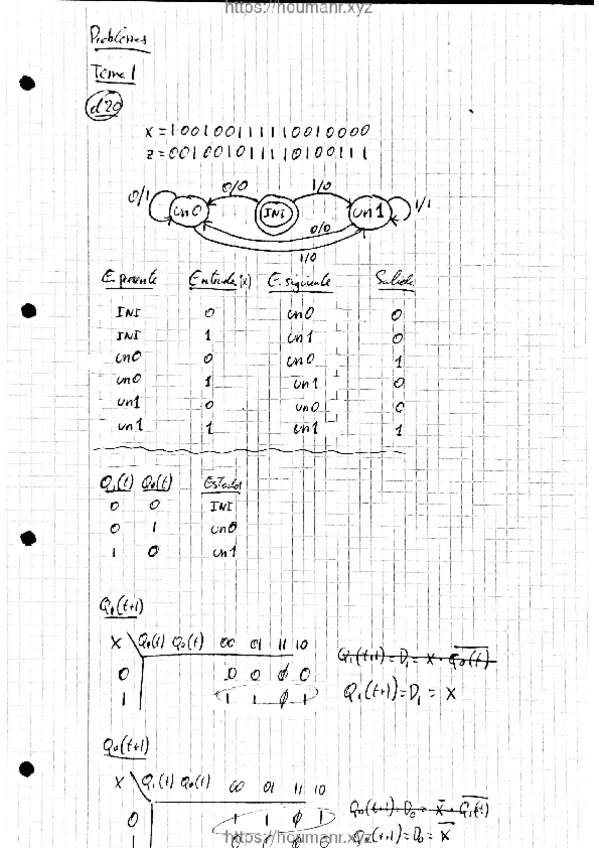 https://houmanr.xyz
Problemas
Tema 1
d20
X = 1 0 0 1 0 0 1 1 1 1 1 0 0 1 0 0 0 0
Z = 0 0 1 0 0 1 0 1 1 1 1 0 1 0 0 1 1 1
0/1 un0 0/0 INI 1/0 un1 1/1
0/0
1/0
E. presente Entrada (x) E. siguiente Salida
INI 0 un0 0
INI 1 un1 0
un0 0 un0 1
un0 1 un1 0
un1 0 un0 0
un1 1 un1 1
Q₁(t) Q₀(t) Estado
0 0 INI
0 1 un0
1 0 un1
Q₁(t+1)
X \ Q₁(t) Q₀(t) 00 01 11 10
0 0 0 ø 0
1 1 1 ø 1
Q₁(t+1) = D₁ = X · Q₀(t)
Q₁(t+1) = D₁ = X
Q₀(t+1)
X \ Q₁(t) Q₀(t) 00 01 11 10
0 1 1 ø 1
Q₀(t+1) = D₀ = X̄ · Q₁(t)
Q₀(t+1) = D₀ = X̄
1 0 0 ø 0
https://houmanr.xyz